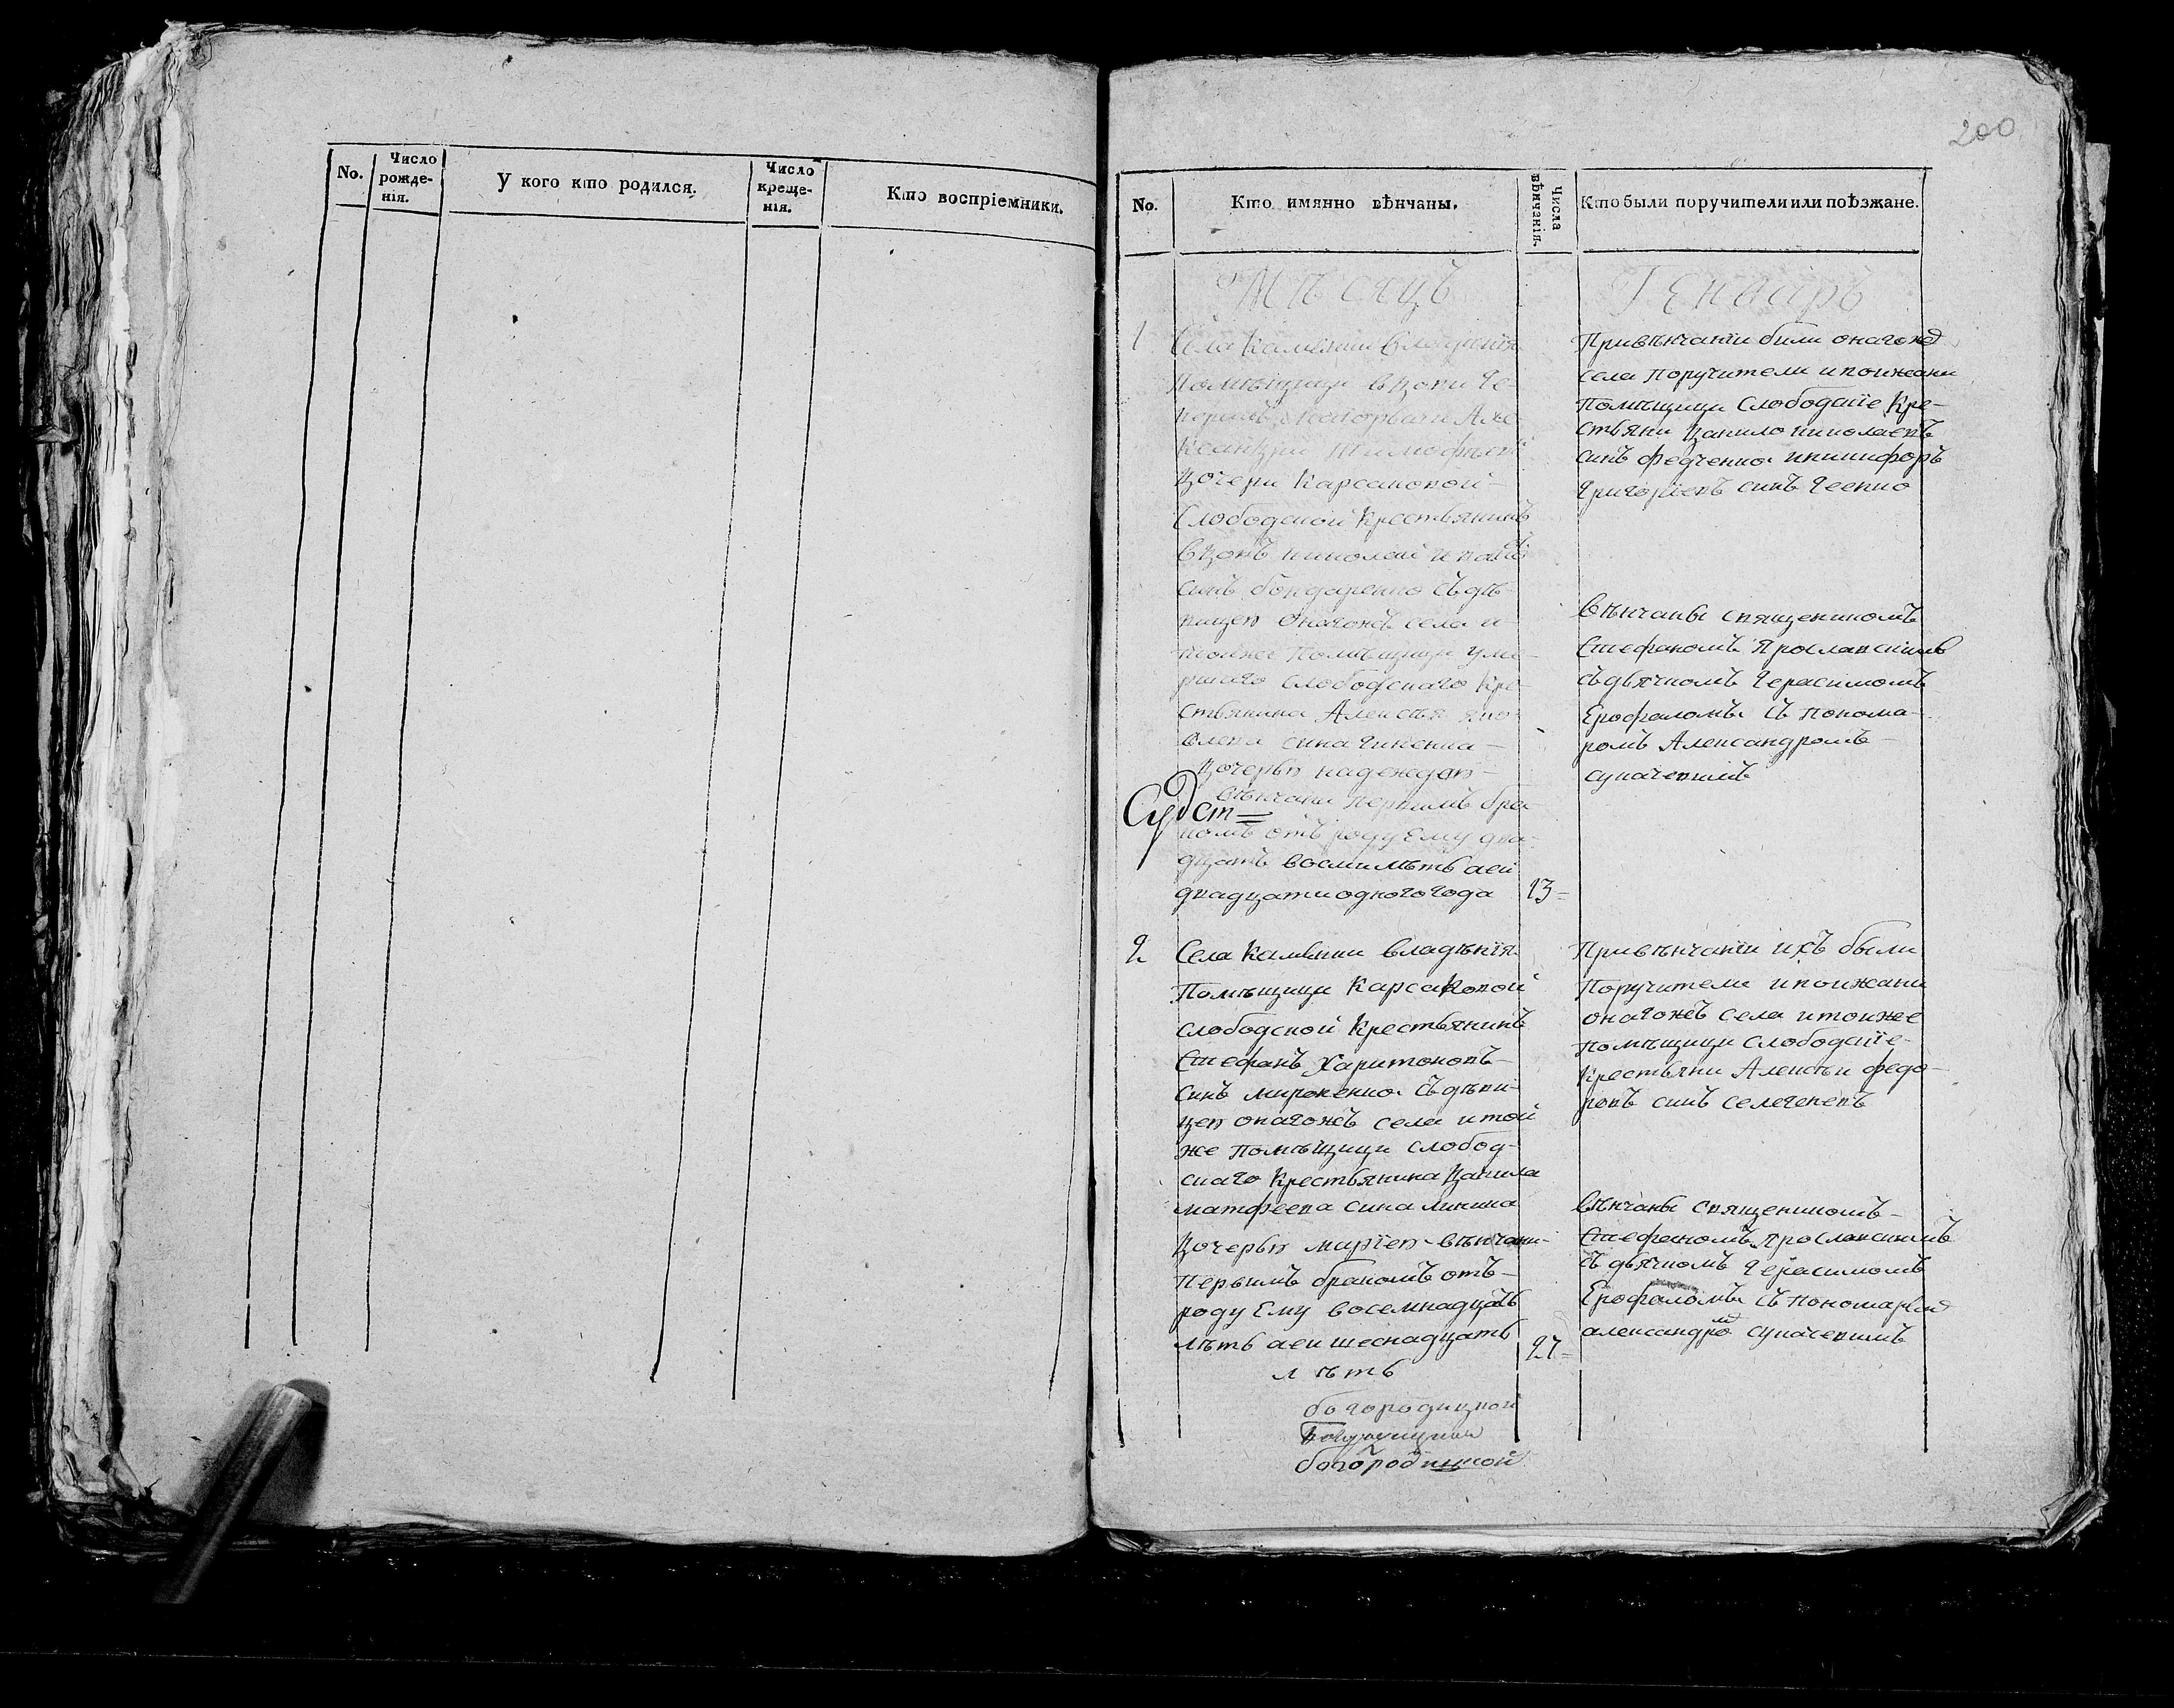 No.
Число рожденія.
У кого кто родился.
Число крещенія.
Кто воспріемники.
200
No.
Кто имянно вѣнчаны.
Числа вѣнчанія.
Кто были поручители или поѣзжане.
Мѣсяцъ
Генваръ
1
Села Каменки владѣнія
Помѣщици вдови Ге-
Александри Тимофѣевой
дочери Карсаковой
Слободской Крестьянинъ
вдовъ николай
синъ бондаренко съ дѣ-
вицею онагожъ села и
тоижее Помѣщици уме-
ршаго слободскаго Кре-
стьянина Алексѣя яко-
влева сина
дочерью надеждою
вѣнчани первимъ бра-
комъ отъ роду Ему два-
дцать восмилѣть аеи
двадцатиодного года
13
Судст
Привѣнчаніи били онагожъ
села Поручители и поижани
Помѣщици Слободскіе Кре-
стьяни Данило николаевъ
синъ федченко иникифоръ
Григоріевъ синъ Геенко
вѣнчаны священикомъ
Стефаномъ Ярославскимъ
съ дьячкомъ Герасимомъ
Ерофаломъ съ понома-
ромъ Александромъ
сукачевимъ
2
Села Каменки владѣнія
Помѣщици Карсаковой
слободской Крестьянинъ
Стефанъ Харитоновъ
Синъ мироненко съ дѣви-
цею онагожъ села и той
же Помѣщици слобод-
скаго Крестьянина Данила
матфеева сина ликина
дочерью маріею вѣнчани
первимъ бракомъ отъ
роду Ему восемнадцать
лѣть аеи шеснадцать
лѣть
27
Привѣнчаніи ихъ были
Поручители и поижани
онагожъ села и тоижее
помѣщици слободскіе
Крестьяни Алексѣи федо-
ровъ синъ селегеневъ
вѣнчаны священикомъ
Стефаномъ Ярославскимъ
съ дьячкомъ Герасимомъ
Ерофаломъ съ пономаремъ
александромъ сукачевимъ
богородицкой
богородицкой